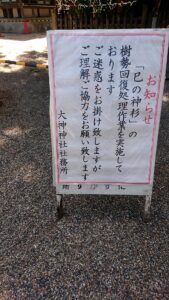 お知らせ
「巳の神杉」の
樹勢回復処理作業を実施して
おります
ご迷惑をお掛け致しますが
ご理解ご協力をお願い致します
大神神社社務所